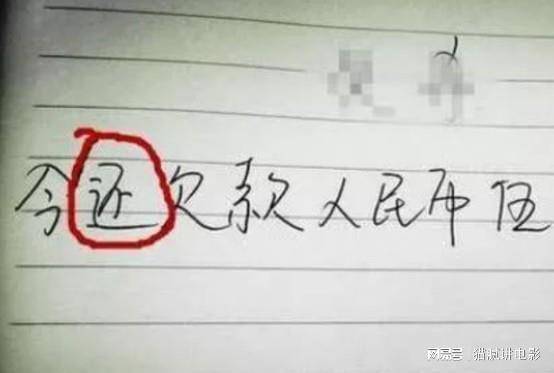 今还欠款人民币伍
网易号 | 猫眯讲电影